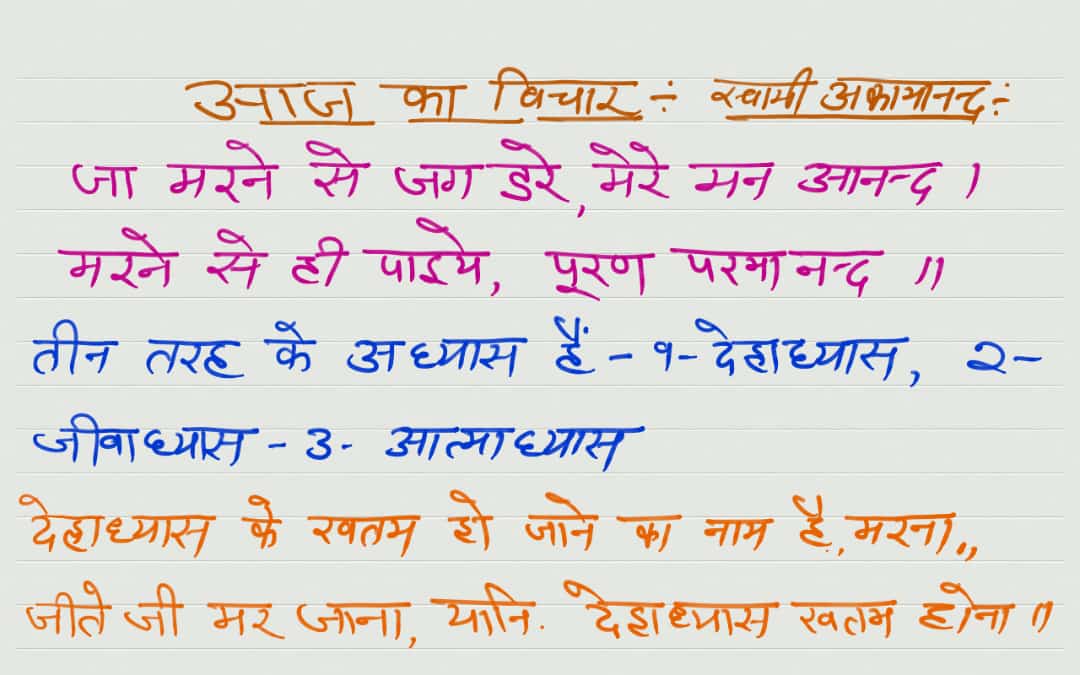 आज का विचार ÷ स्वामी अकामानन्द ÷
जा मरने से जग डरे, मेरे मन आनन्द ।
मरने से ही पाइये, पूरण परमानन्द ॥
तीन तरह के अध्यास हैं - १- देहाध्यास, २-
जीवाध्यास - ३- आत्माध्यास
देहाध्यास के खतम हो जाने का नाम है, मरना,,
जीते जी मर जाना, यानि. देहाध्यास खतम होना ॥